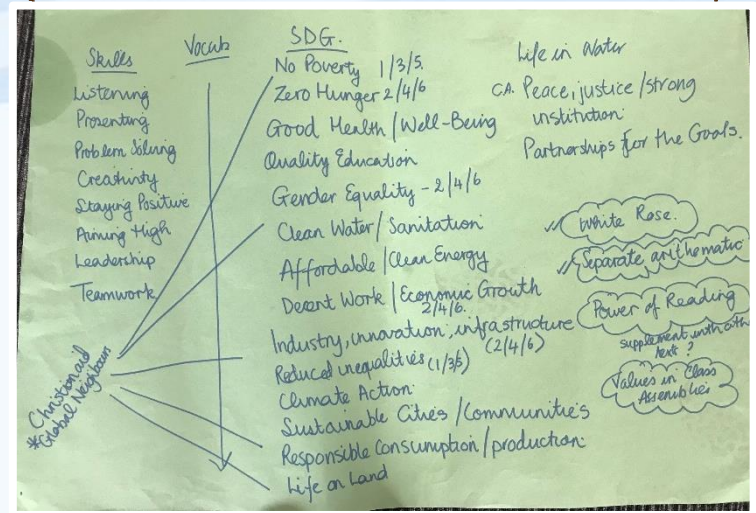 Skills
Listening
Prosenting
Problem Solving
Creativity
Staying Positive
Aiming High
Leadership
Teamwork
Christian aid
*Global Neighbours
Vocab
SDG.
No Poverty 1/3/5.
Zero Hunger 2/4/6
Good Health / Well-Being
Quality Education
Gender Equality - 2/4/6
Clean Water / Sanitation
Affordable / Clean Energy
Decent Work / Economic Growth
2/4/6.
Industry, innovation, infrastructure
(2/4/6)
Reduced inequalities (1/3/5)
Climate Action.
Sustainable Cities / Communities
Responsible Consumption / production.
Life on Land
Life in Water
CA. Peace, justice / strong
institution.
Partnerships for the Goals.
White Rose.
Separate arithmatic
Power of Reading
supplement with oth
texts?
Values in Class
Assemblies